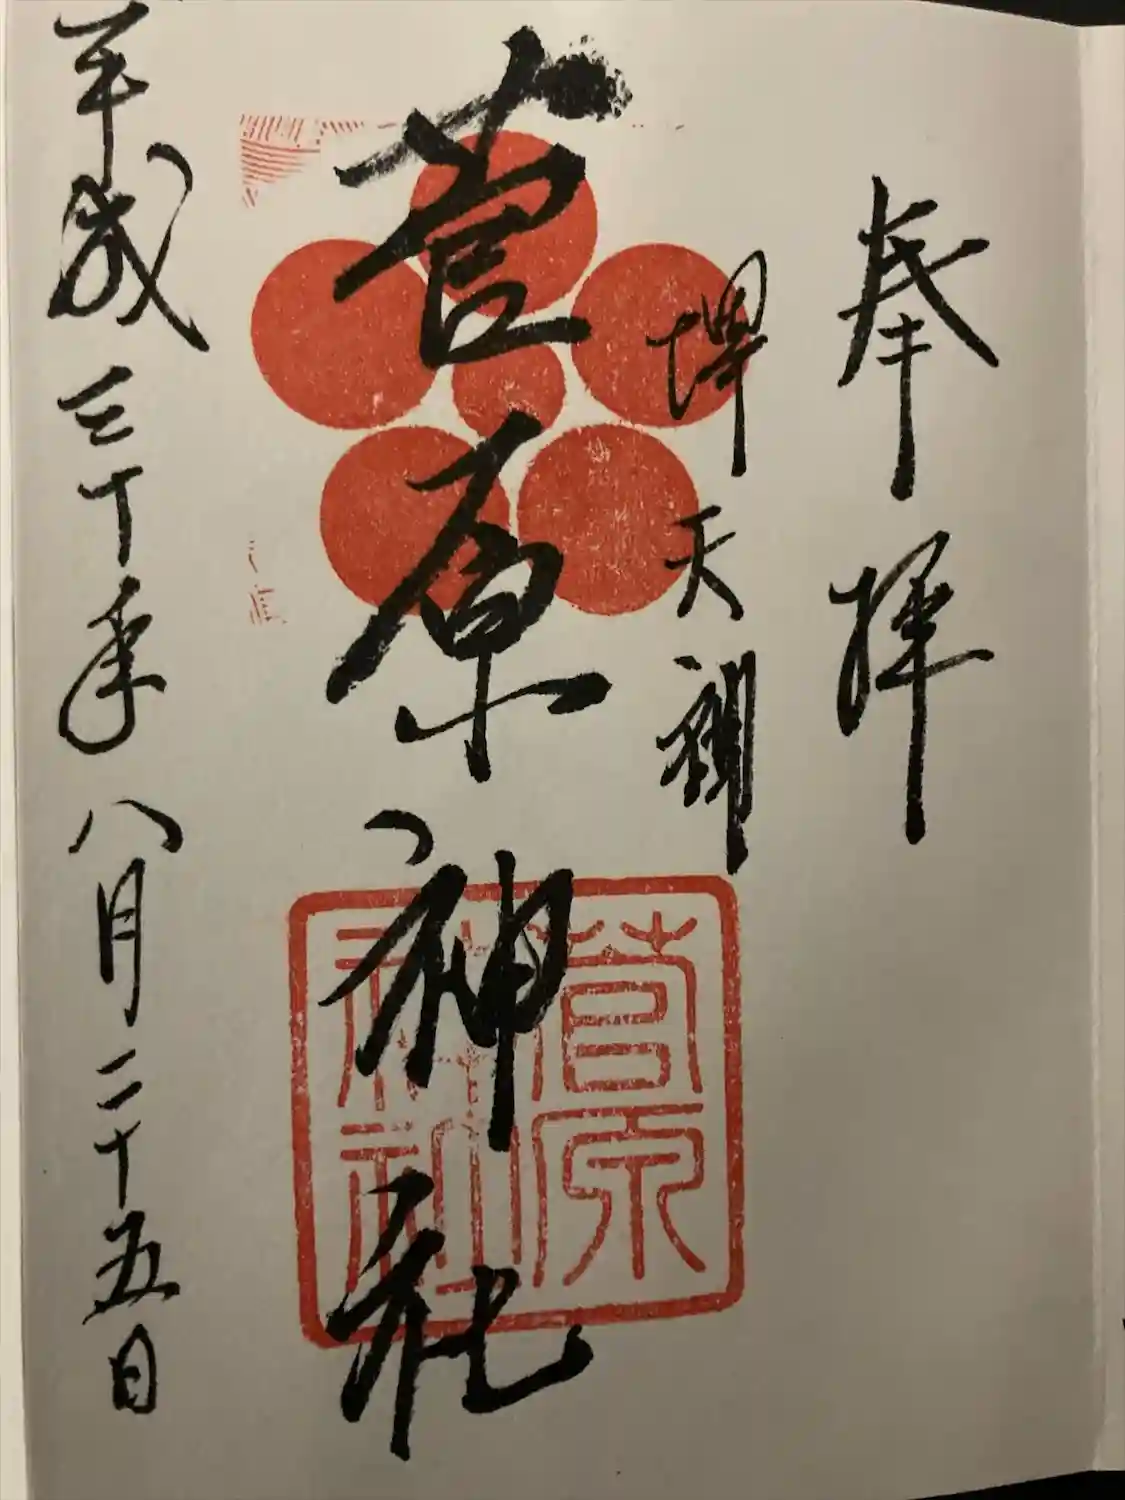 奉拝
堺天神
菅原神社
菅原
神社
平成三十年八月二十五日